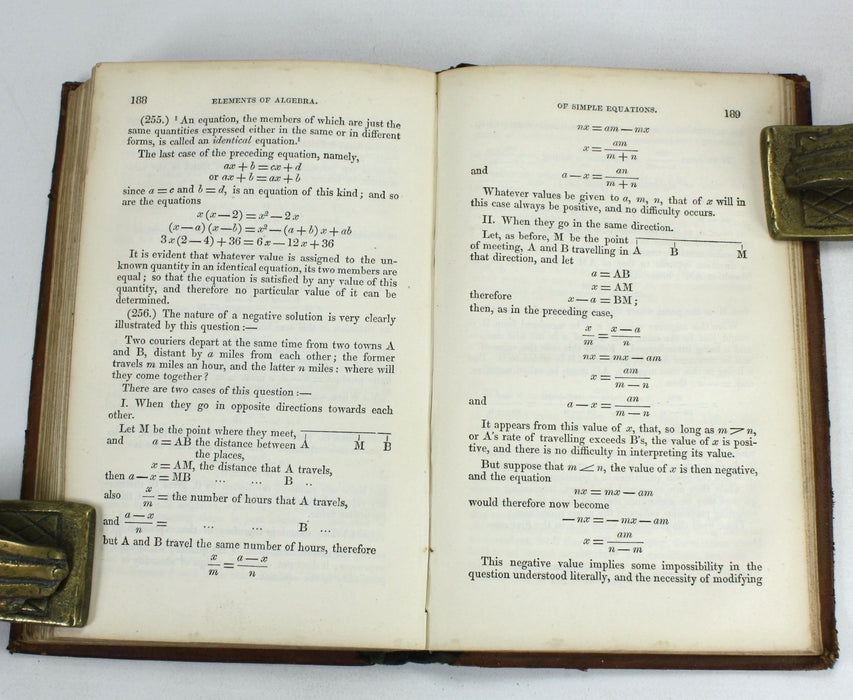 188
ELEMENTS OF ALGEBRA.
(255.) ¹ An equation, the members of which are just the
same quantities expressed either in the same or in different
forms, is called an identical equation.¹
The last case of the preceding equation, namely,
ax + b = cx + d
or ax + b = ax + b
since a = c and b = d, is an equation of this kind; and so
are the equations
x (x — 2) = x² — 2 x
(x — a) (x — b) = x² — (a + b) x + ab
3 x (2 — 4) + 36 = 6 x — 12 x + 36
It is evident that whatever value is assigned to the un-
known quantity in an identical equation, its two members are
equal; so that the equation is satisfied by any value of this
quantity, and therefore no particular value of it can be
determined.
(256.) The nature of a negative solution is very clearly
illustrated by this question :—
Two couriers depart at the same time from two towns A
and B, distant by a miles from each other; the former
travels m miles an hour, and the latter n miles: where will
they come together?
There are two cases of this question :—
I. When they go in opposite directions towards each
other.
Let M be the point where they meet,
and a = AB the distance between A M B
the places,
x = AM, the distance that A travels,
then a — x = MB ... ... B ..
also x/m = the number of hours that A travels,
and a — x/n = ... ... B ...
but A and B travel the same number of hours, therefore
x/m = a — x/n
OF SIMPLE EQUATIONS.
189
nx = am — mx
x = am/m + n
and a — x = an/m + n
Whatever values be given to a, m, n, that of x will in
this case always be positive, and no difficulty occurs.
II. When they go in the same direction.
Let, as before, M be the point
of meeting, A and B travelling in A B M
that direction, and let
a = AB
x = AM
therefore x — a = BM;
then, as in the preceding case,
x/m = x — a/n
nx = mx — am
x = am/m — n
and a — x = an/m — n
It appears from this value of x, that, so long as m > n,
or A's rate of travelling exceeds B's, the value of x is posi-
tive, and there is no difficulty in interpreting its value.
But suppose that m < n, the value of x is then negative,
and the equation
nx = mx — am
would therefore now become
— nx = — mx — am
x = am/n — m
This negative value implies some impossibility in the
question understood literally, and the necessity of modifying